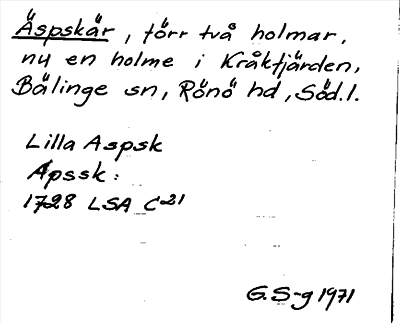 Äspskär, förr två holmar,
nu en holme i Kråkfjärden,
Bälinge sn, Rönö hd, Söd.l.
Lilla Aspsk
Apssk:
1728 LSA C²¹
G.S-g 1971